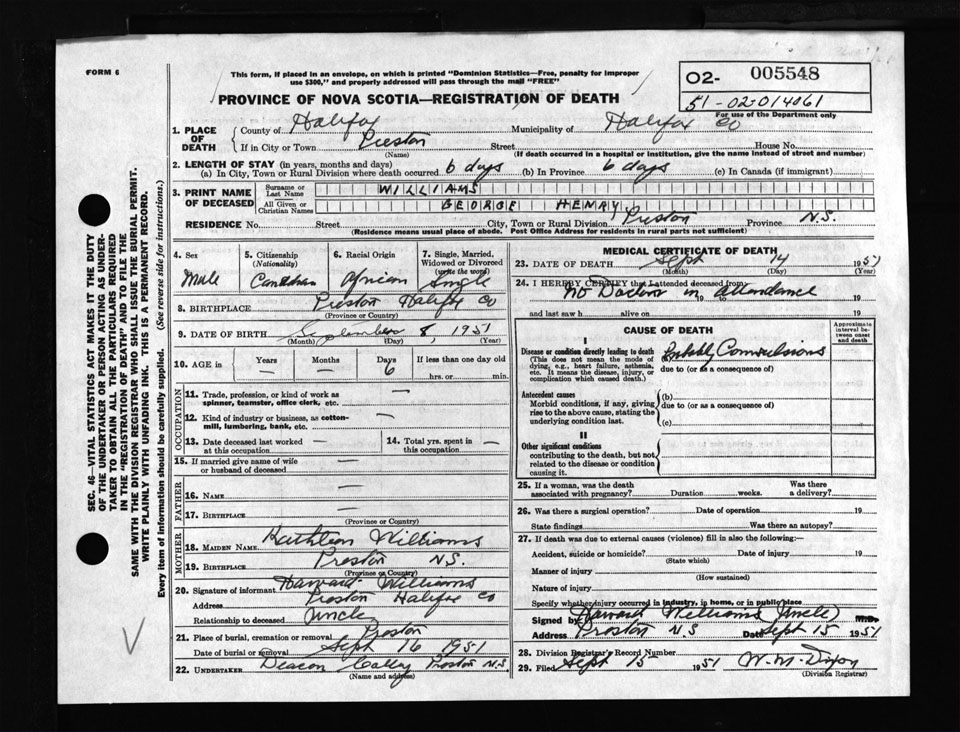 FORM 6
This form, if placed in an envelope, on which is printed "Dominion Statistics—Free, penalty for improper
use $300," and properly addressed will pass through the mail "FREE"
PROVINCE OF NOVA SCOTIA—REGISTRATION OF DEATH
02- 005548
51-02-014061
For use of the Department only
1. PLACE OF DEATH
County of Halifax Municipality of Halifax Co
If in City or Town Preston Street House No.
(Name) (If death occurred in a hospital or institution, give the name instead of street and number)
2. LENGTH OF STAY (in years, months and days)
(a) In City, Town or Rural Division where death occurred 6 days (b) In Province 6 days (c) In Canada (if immigrant)
3. PRINT NAME OF DECEASED
Surname or Last Name WILLIAMS
All Given or Christian Names GEORGE HENRY
RESIDENCE No. Street City, Town or Rural Division Preston Province N.S.
(Residence means usual place of abode. Post Office Address for residents in rural parts not sufficient)
4. Sex Male
5. Citizenship (Nationality) Canadian
6. Racial Origin African
7. Single, Married, Widowed or Divorced (write the word) Single
8. BIRTHPLACE Preston Halifax Co
(Province or Country)
9. DATE OF BIRTH September 8, 1951
(Month) (Day) (Year)
10. AGE in Years — Months — Days 6 If less than one day old
hrs. or min.
OCCUPATION
11. Trade, profession, or kind of work as —
spinner, teamster, office clerk, etc.
12. Kind of industry or business, as cotton- —
mill, lumbering, bank, etc.
13. Date deceased last worked at this occupation —
14. Total yrs. spent in this occupation —
15. If married give name of wife or husband of deceased —
FATHER
16. Name —
17. Birthplace —
(Province or Country)
MOTHER
18. Maiden Name Kathleen Williams
19. Birthplace Preston N.S.
(Province or Country)
20. Signature of informant Howard Williams
Address Preston Halifax Co
Relationship to deceased Uncle
21. Place of burial, cremation or removal Preston
Date of burial or removal Sept 16 1951
22. UNDERTAKER Deacon Preston N.S.
(Name and address)
MEDICAL CERTIFICATE OF DEATH
23. DATE OF DEATH Sept 14 1951
(Month) (Day) (Year)
24. I HEREBY CERTIFY that I attended deceased from
No Doctor in attendance
19 to 19
and last saw h alive on 19
CAUSE OF DEATH
Approximate interval between onset and death
I
Disease or condition directly leading to death (a) Probably Convulsions
(This does not mean the mode of dying, e.g., heart failure, asthenia, etc. It means the disease, injury, or complication which caused death.)
due to (or as a consequence of)
Antecedent causes
Morbid conditions, if any, giving rise to the above cause, stating the underlying condition last.
(b)
due to (or as a consequence of)
(c)
II
Other significant conditions
contributing to the death, but not related to the disease or condition causing it.
25. If a woman, was the death associated with pregnancy? Duration weeks. Was there a delivery?
26. Was there a surgical operation? Date of operation 19
State findings Was there an autopsy?
27. If death was due to external causes (violence) fill in also the following:—
Accident, suicide or homicide? Date of injury 19
(State which)
Manner of injury
(How sustained)
Nature of injury
Specify whether injury occurred in industry, in home, or in public place
Signed by Howard Williams (Uncle) M.D.
Address Preston N S Date Sept 15 1951
28. Division Registrar's Record Number
29. Filed Sept 15 1951 W. M. Dixon
(Division Registrar)
SEC. 46—VITAL STATISTICS ACT MAKES IT THE DUTY
OF THE UNDERTAKER OR PERSON ACTING AS UNDER-
TAKER TO OBTAIN ALL THE PARTICULARS REQUIRED
IN THE "REGISTRATION OF DEATH" AND TO FILE THE
SAME WITH THE DIVISION REGISTRAR WHO SHALL ISSUE THE BURIAL PERMIT.
WRITE PLAINLY WITH UNFADING INK. THIS IS A PERMANENT RECORD.
Every item of information should be carefully supplied. (See reverse side for instructions.)